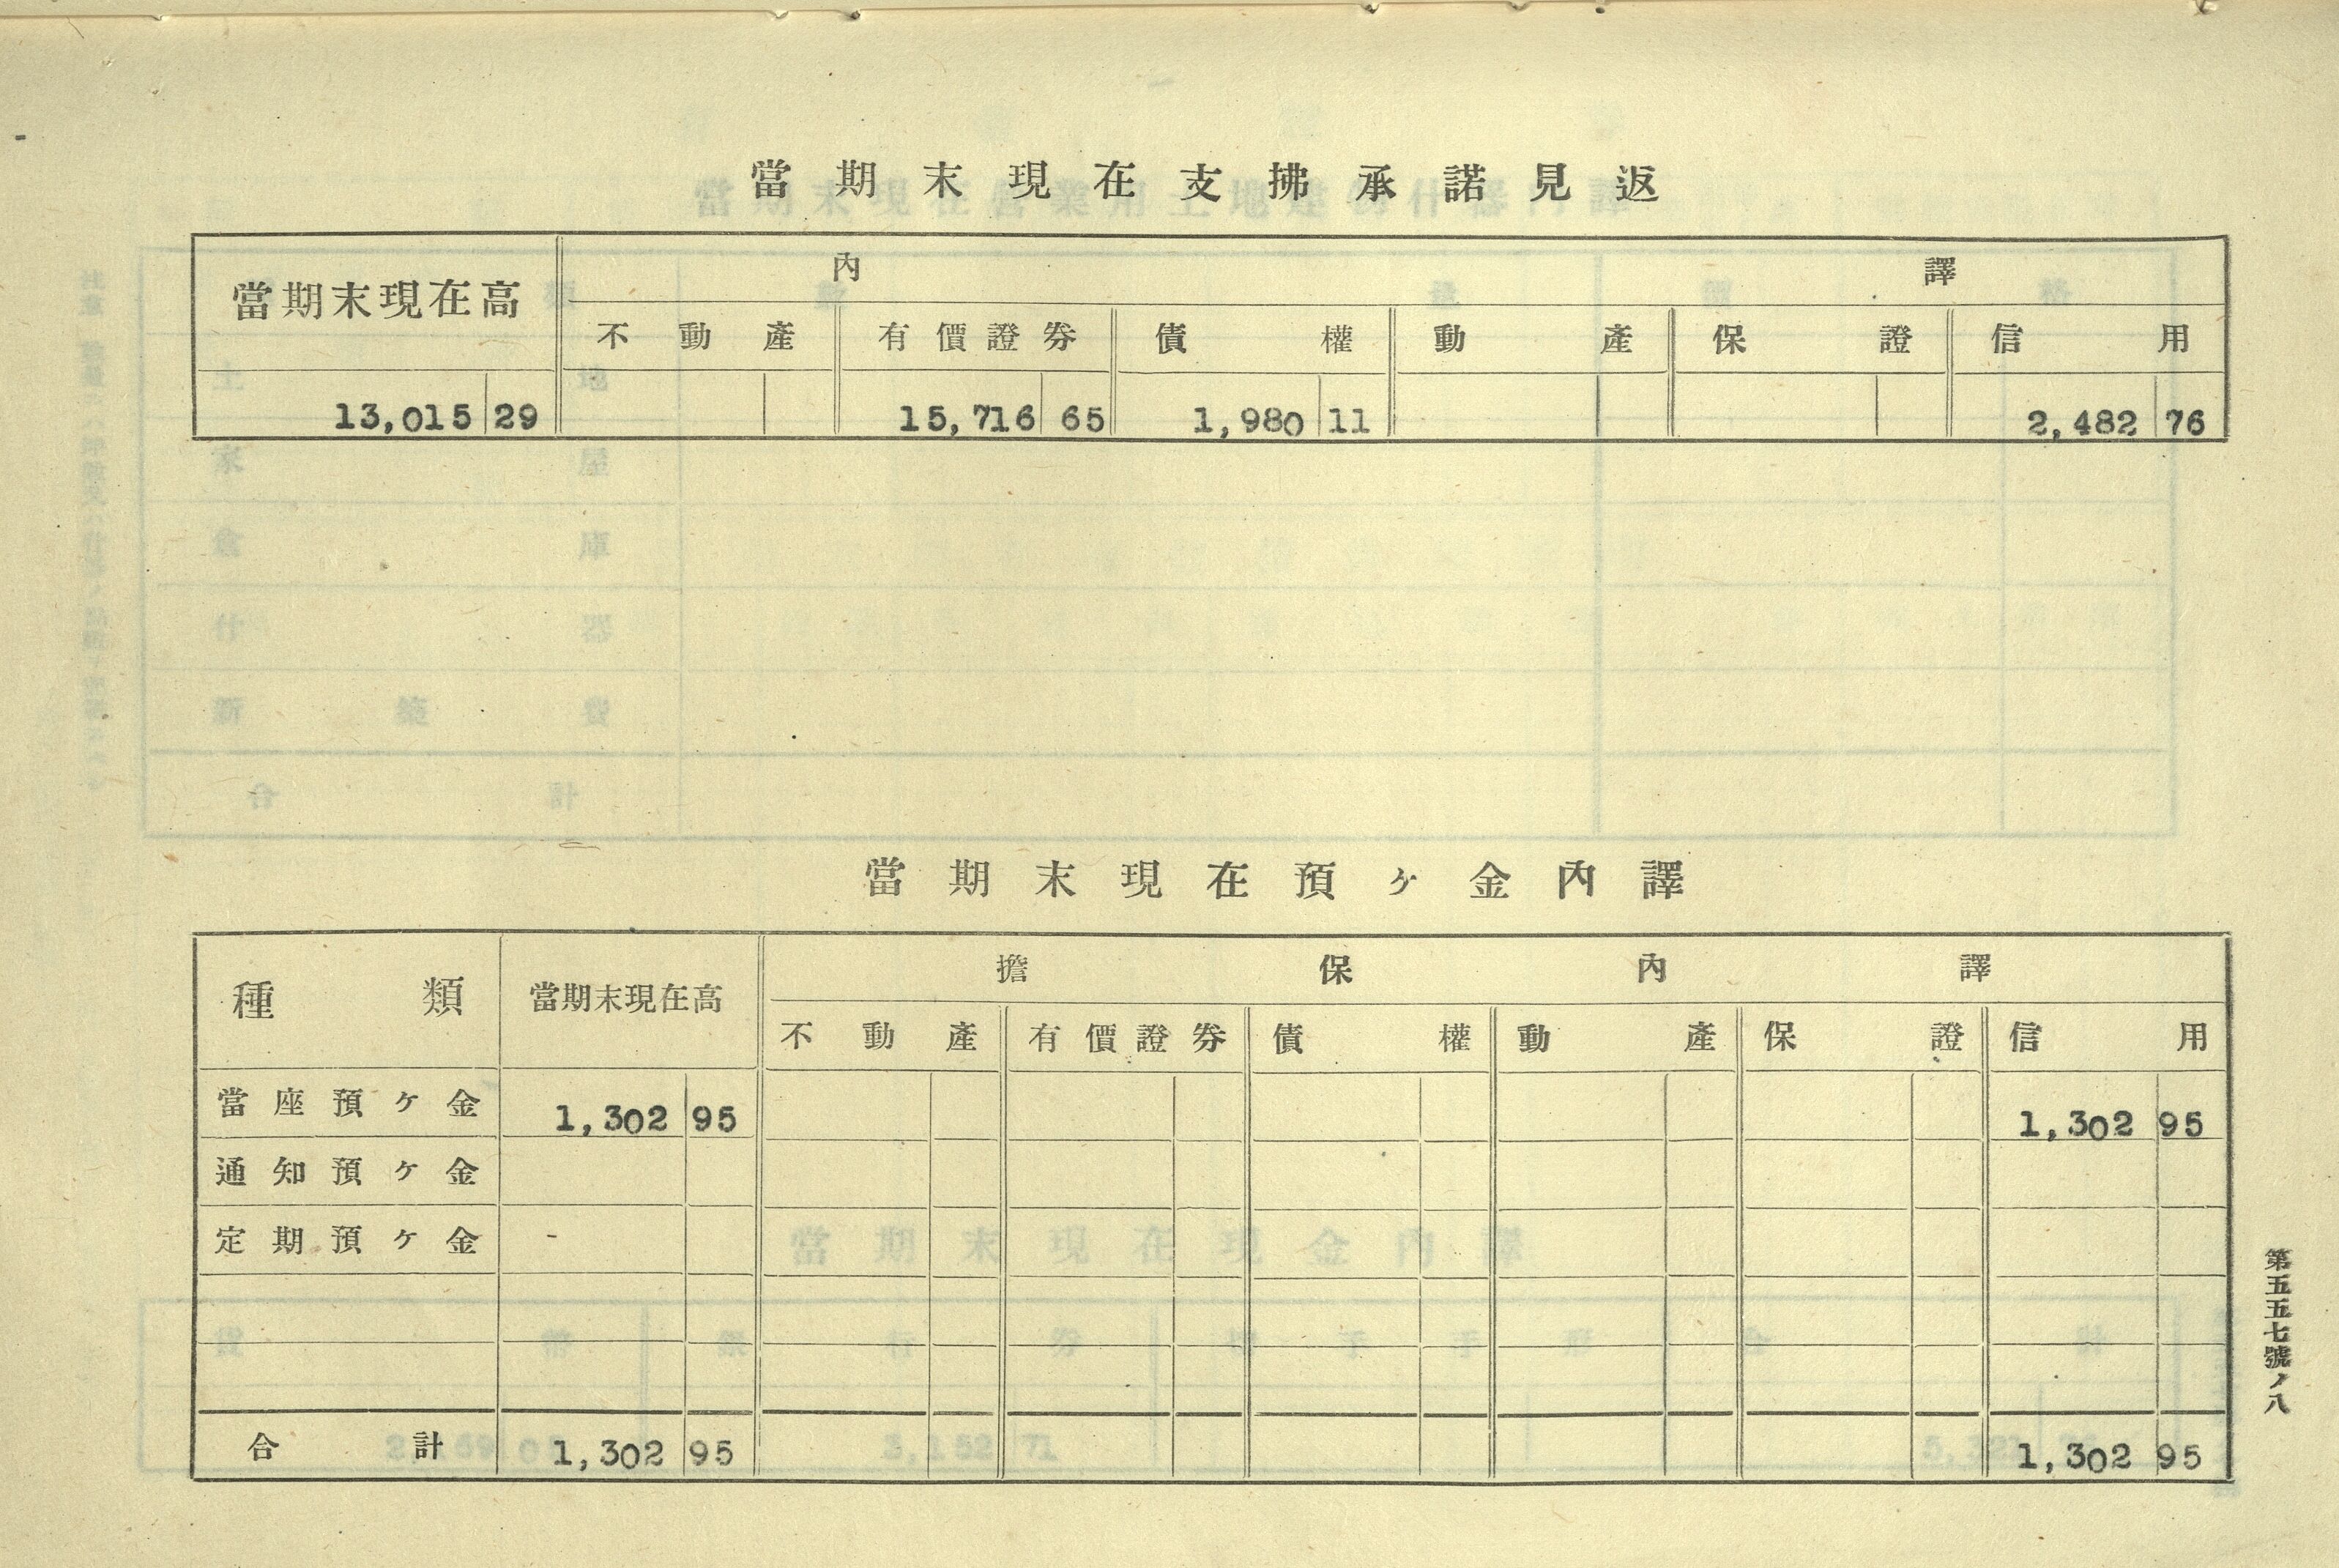 當期末現在支拂承諾見返
當期末現在高 內譯
不動產 有價證券 債權 動產 保證 信用
13,015 29 15,716 65 1,980 11 2,482 76
當期末現在預ヶ金內譯
種類 當期末現在高 擔保內譯
不動產 有價證券 債權 動產 保證 信用
當座預ヶ金 1,302 95 1,302 95
通知預ヶ金
定期預ヶ金 -
合計 1,302 95 1,302 95
第五五七號ノ八